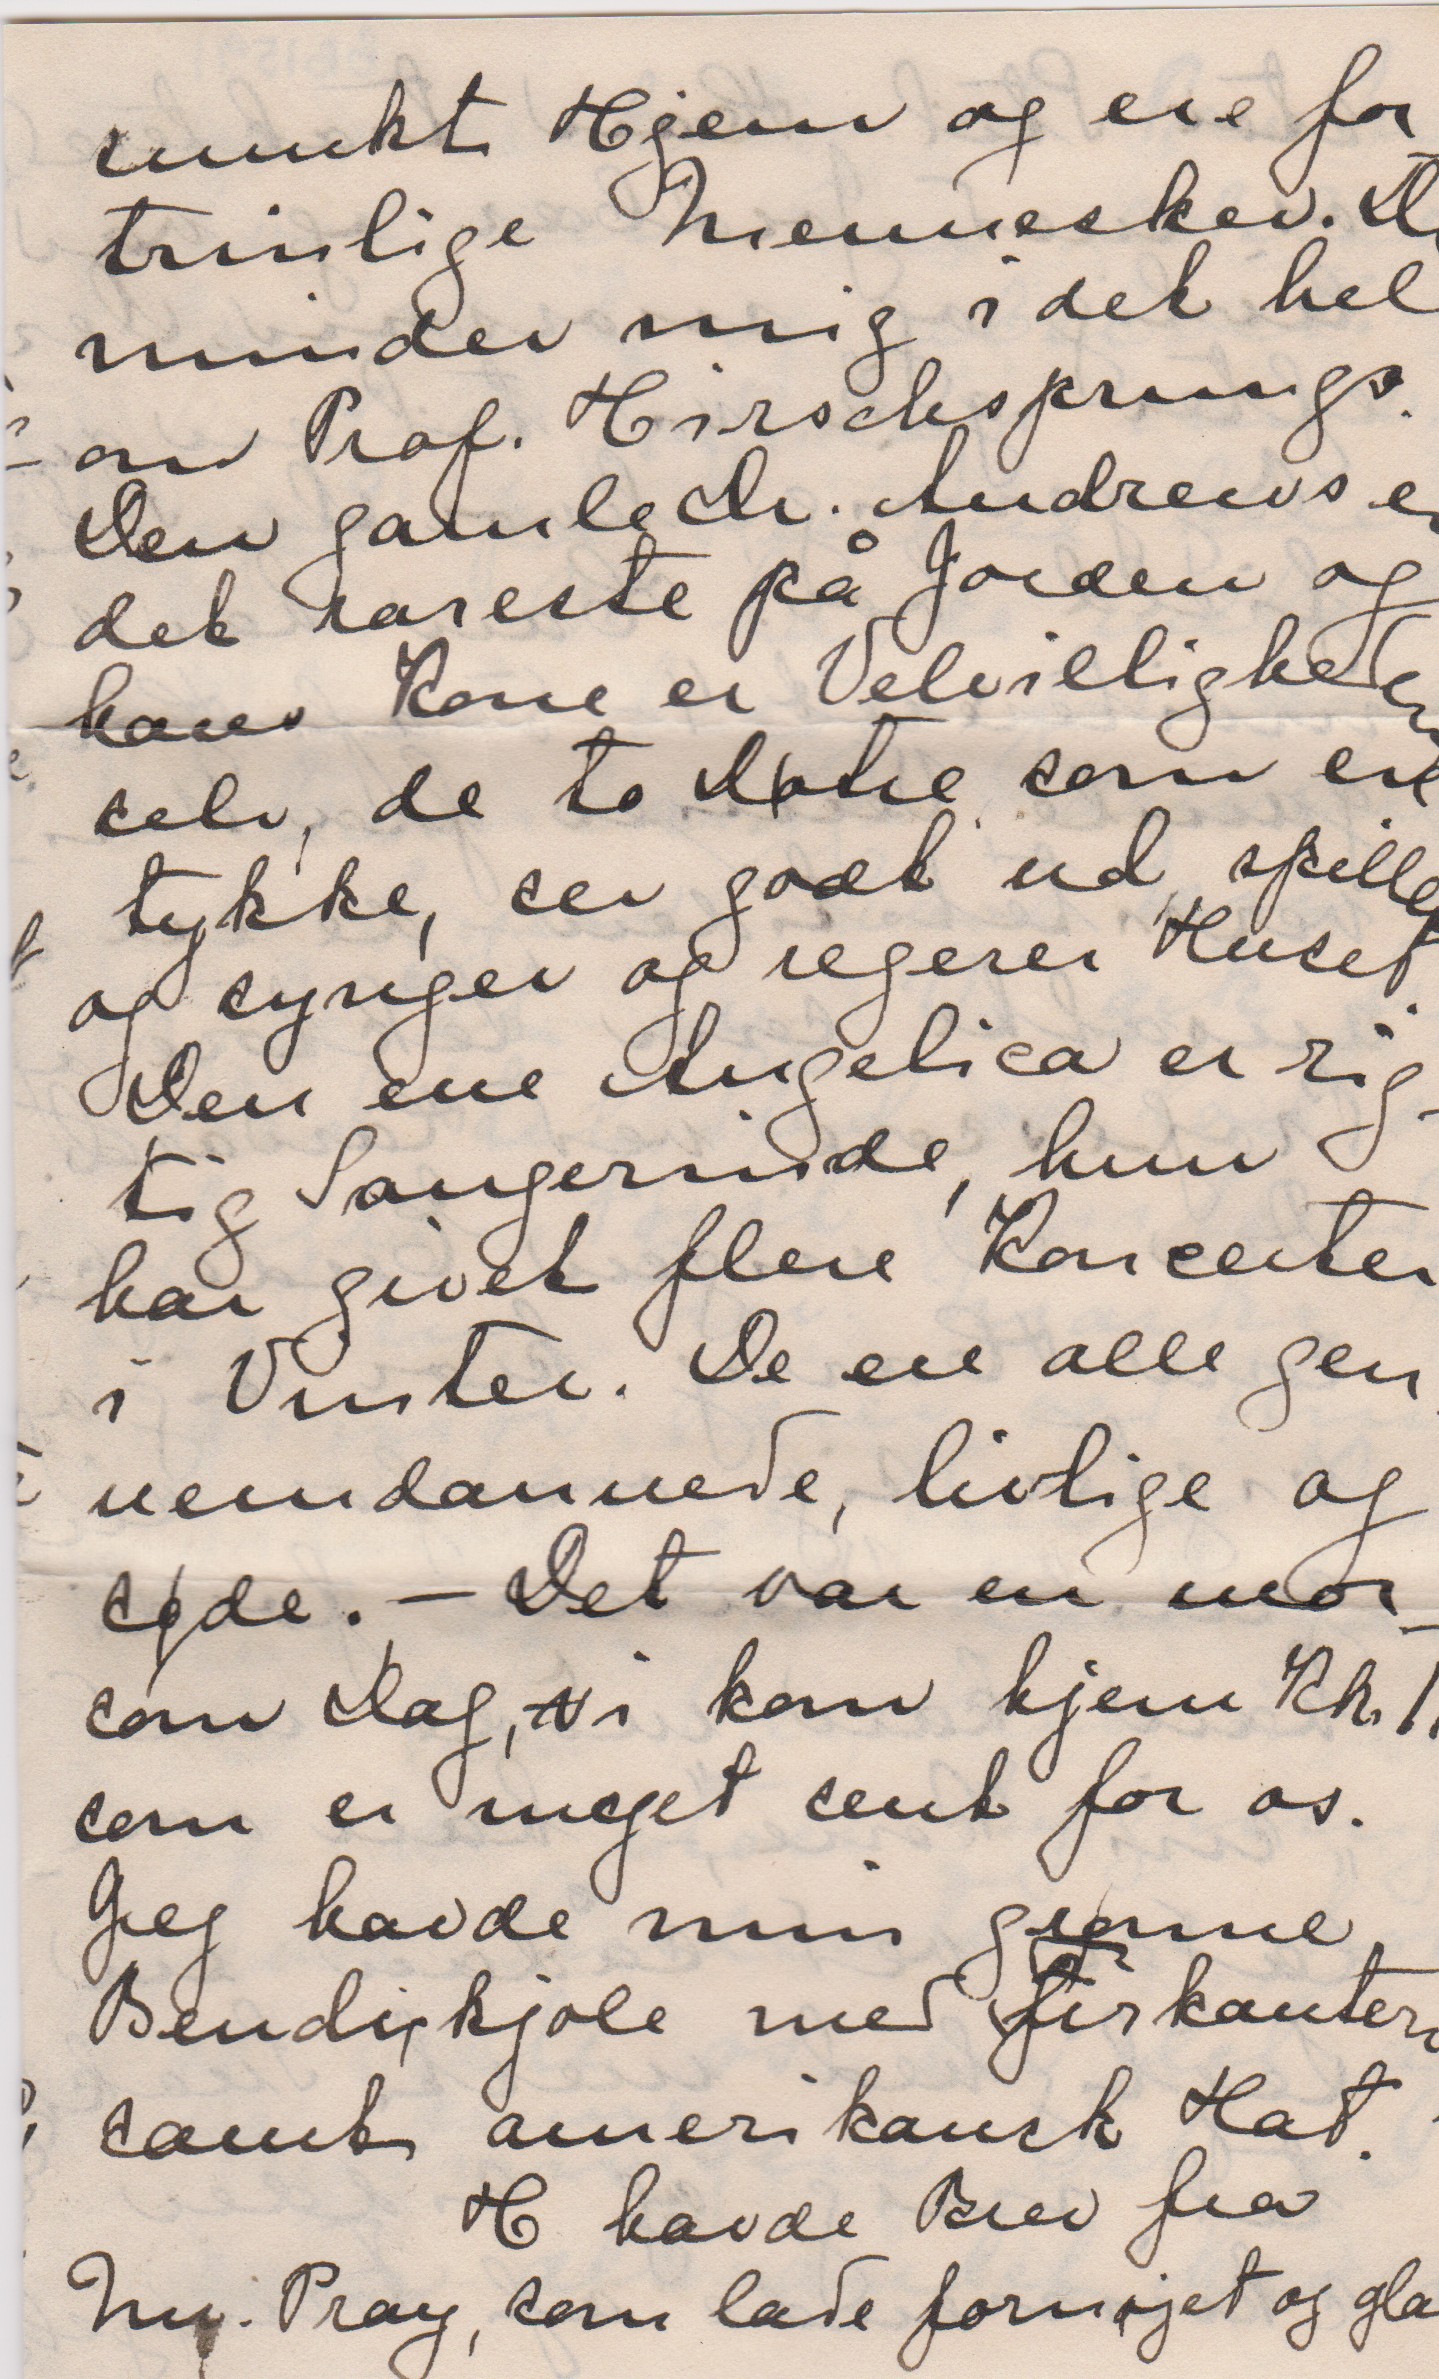 smukt Hjem og ere for
trinlige Mennesker. De
minder mig i det hel
om Prof. Hirschsprungs.
Den gamle Dr. Andrews er
det rareste på Jorden og
hans Kone er Velvilligheden
selv, de to Døtre som ere
tykke, ser godt ud, spiller
og synger og regerer Huset.
Den ene Angelica er rig-
tig Sangerinde, hun
har givet flere Koncerter
i Vinter. De ere alle gen
nemdannede, livlige og
søde. – Det var en mor-
som Dag, vi kom hjem Kl. 1
som er meget sent for os.
Jeg havde min grønne
Bendixkjole med firkantet
samt amerikansk Hat.
H havde Brev fra
Mrs. Pray, som lade fornøjet og gla